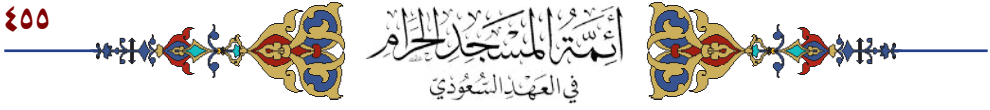 ٤٥٥
أَئِمَّةُ المَسْجِدِ الحَرَامِ
في العَهْدِ السُّعُوْدِيّ